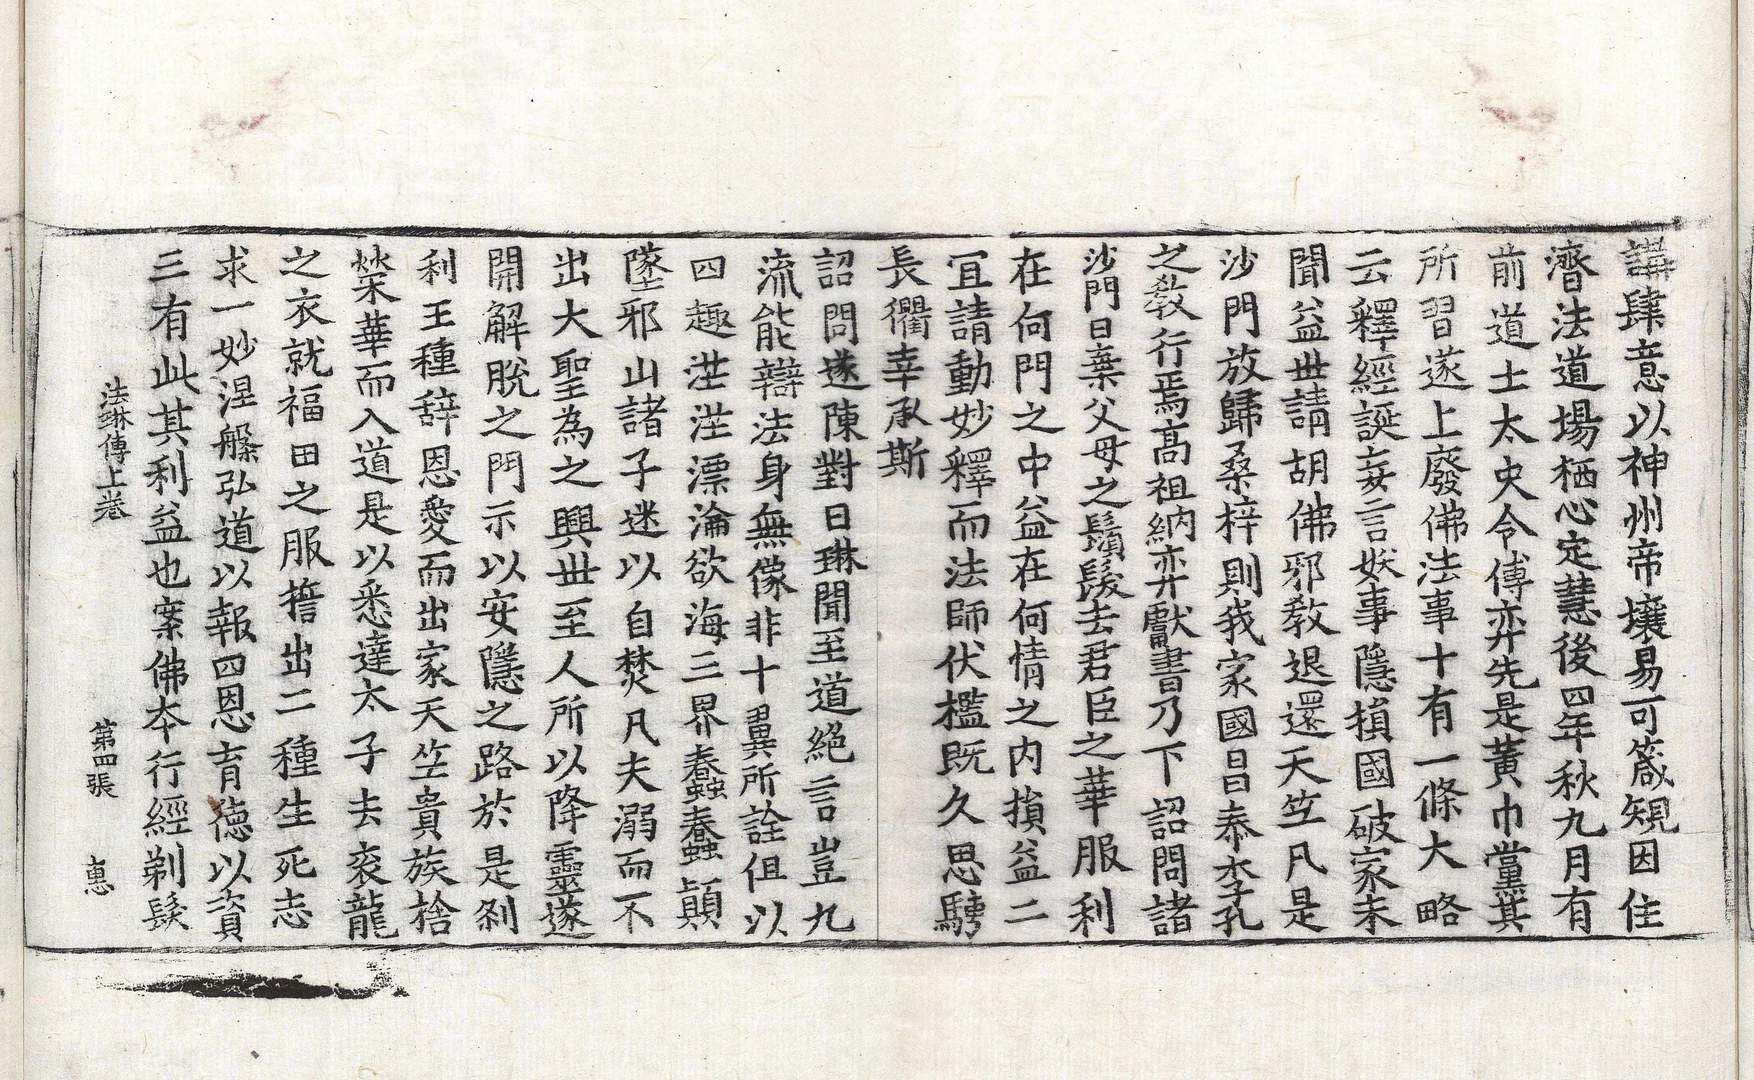 講肆意以神州帝壤易可箴規因住
濟法道場栖心定慧後四年秋九月有
前道士太史令傅弈先是黃巾黨其
所習遂上廢佛法事十有一條大略
云釋經誕妄言妖事隱損國破家未
聞益世請胡佛邪教退還天竺凡是
沙門放歸桑梓則我家國昌泰李孔
之教行焉高祖納弈獻書乃下詔問諸
沙門曰棄父母之鬚髮去君臣之華服利
在何門之中益在何情之內損益二
冝請動妙釋而法師伏檻旣久思騁
長衢幸承斯
詔問遂陳對曰琳聞至道絕言豈九
流能辯法身無像非十翼所詮但以
四趣茫茫漂淪欲海三界蠢蠢顚
墜邪山諸子迷以自焚凡夫溺而不
出大聖為之興世至人所以降靈遂
開解脫之門示以安隱之路於是剎
利王種辭恩愛而出家天竺貴族捨
榮華而入道是以悉達太子去衮龍
之衣就福田之服擔出二種生死志
求一妙涅槃弘道以報四恩育德以資
三有此其利益也案佛夲行經剃髮
法琳傳上卷 第四張 惠